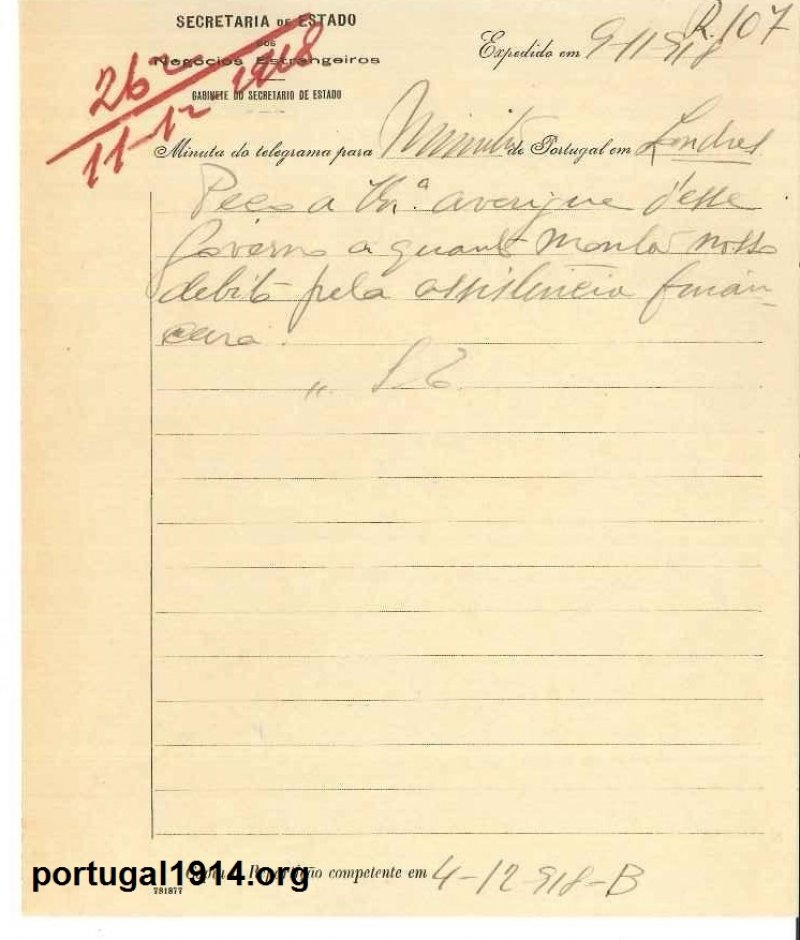 R. 107
SECRETARIA DE ESTADO
DOS
Negócios Estrangeiros
GABINETE DO SECRETARIO DE ESTADO
Expedido em 9-11-918
26
11-12 1918
Minuta do telegrama para Ministro de Portugal em Londres
Peço a V.ª averigue d'esse
Governo a quanto monta nosso
debito pela assistencia finan-
ceira.
portugal1914.org
Repartição competente em 4-12-918-B
781877